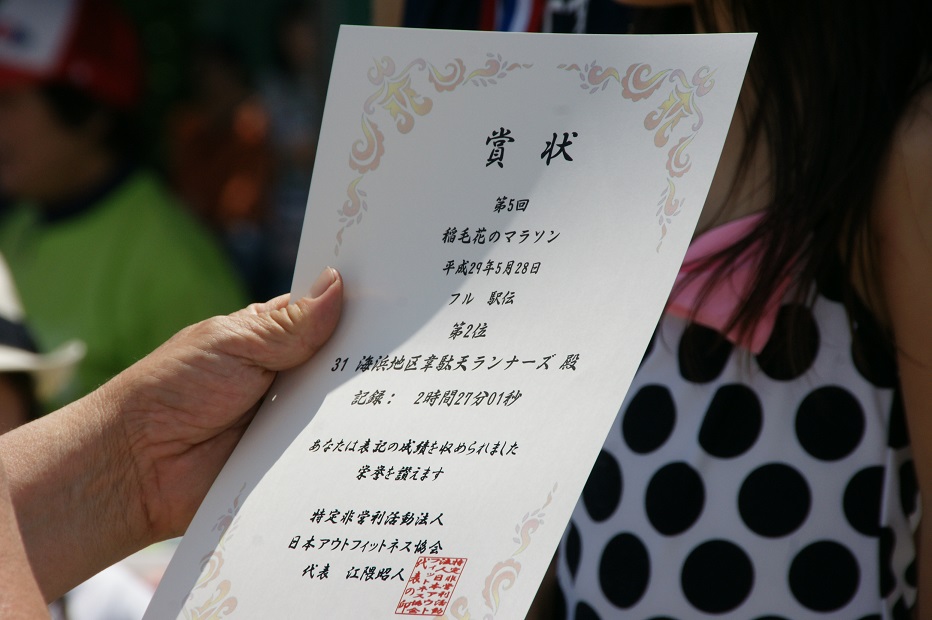 賞 状
第5回
稲毛花のマラソン
平成29年5月28日
フル 駅伝
第2位
31 海浜地区韋駄天ランナーズ 殿
記録： 2時間27分01秒
あなたは表記の成績を収められました
栄誉を讃えます
特定非営利活動法人
日本アウトフィットネス協会
代表 江隈昭人